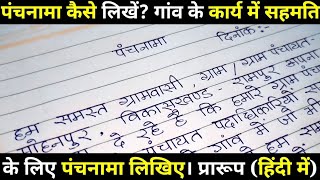 पंचनामा कैसे लिखें? गांव के कार्य में सहमति
पंचनामा
दिनांक:-
हम समस्त ग्रामवासी, ग्राम / ग्राम पंचायत-
मोहनपुर, विकासखण्ड- रामपुर अपना
दे रहे हैं कि हमारे ग्राम पंचा
पंचायत पदाधिकारियों
गांव में जो भी
के लिए पंचनामा लिखिए। प्रारूप (हिंदी में)